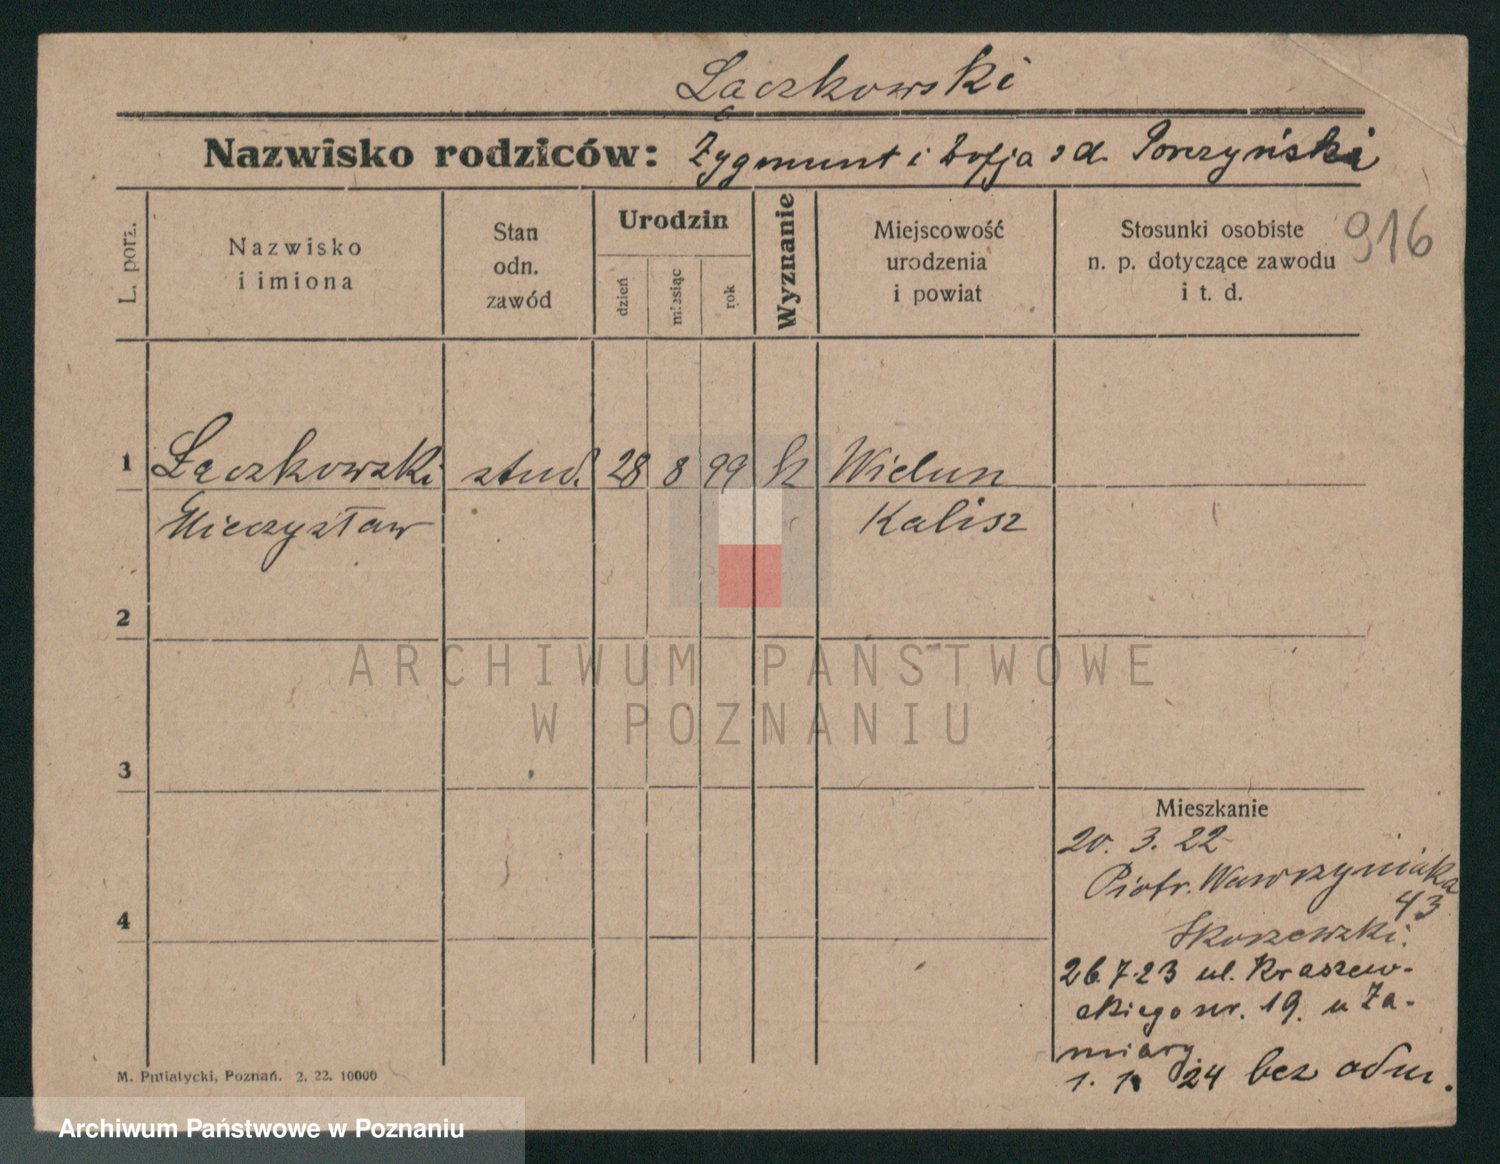 Łączkowski
Nazwisko rodziców: Zygmunt i Zofja z d. Porczyński
L. porz.
Nazwisko
i imiona
Stan
odn.
zawód
Urodzin
dzień
miesiąc
rok
Wyznanie
Miejscowość
urodzenia
i powiat
Stosunki osobiste
n. p. dotyczące zawodu
i t. d.
916
1 Łączkowski stud. 28 8 99 Wielun
Mieczysław Kalisz
2
3
4
ARCHIWUM PAŃSTWOWE
W POZNANIU
Mieszkanie
20. 3. 22
Piotr. Wawrzyniaka
43
Skorzewski.
26.7.23 ul. Kraszew-
skiego nr. 19. u Za-
miary
1. 1. 24 bez odm.
M. Putiatycki, Poznań. 2. 22. 10000
Archiwum Państwowe w Poznaniu